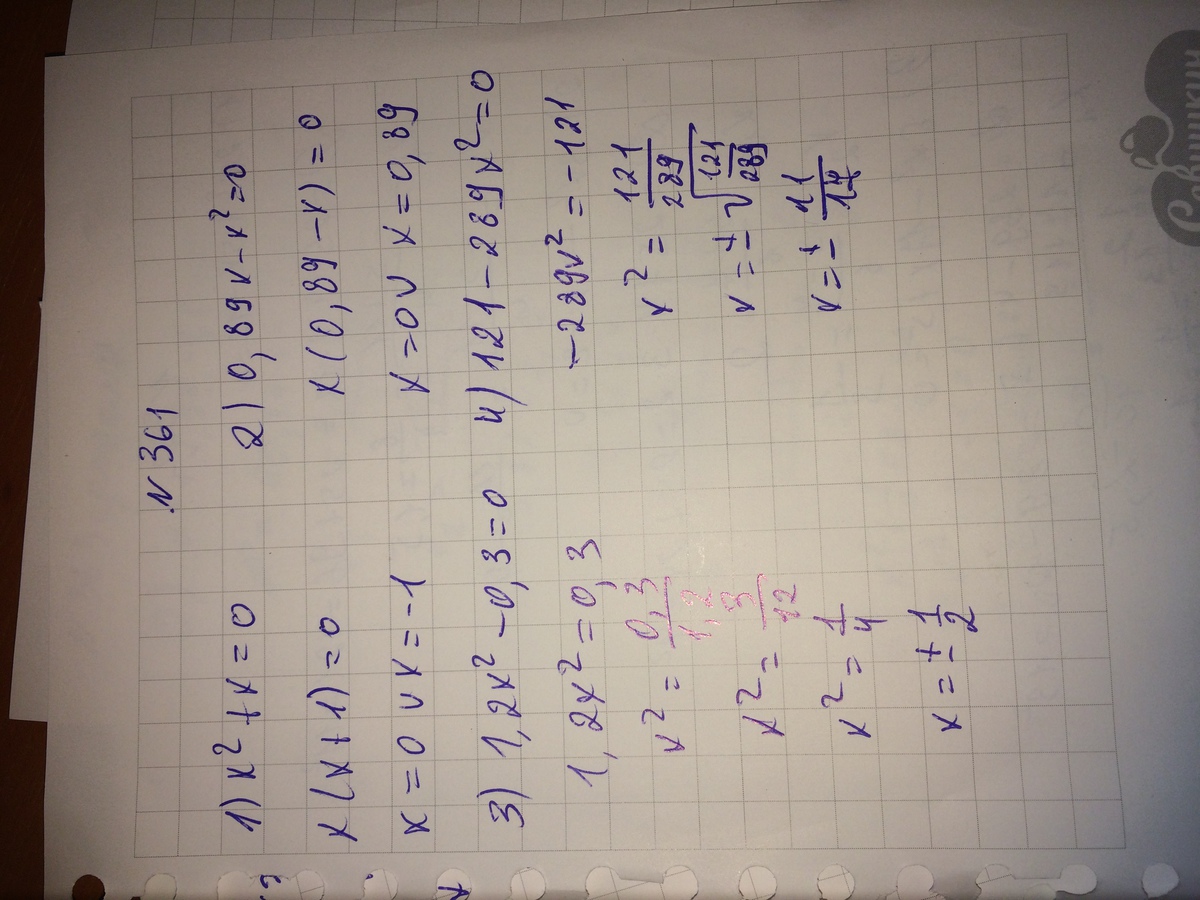 N 361
1) x² + x = 0
x(x+1) = 0
x = 0 ∨ x = -1
2) 0,89x - x² = 0
x(0,89 - x) = 0
x = 0 ∨ x = 0,89
3) 1,2x² - 0,3 = 0
1,2x² = 0,3
x² = 0,3/1,2
x² = 3/12
x² = 1/4
x = ± 1/2
4) 121 - 289x² = 0
-289x² = -121
x² = 121/289
x = ± √(121/289)
x = ± 11/17